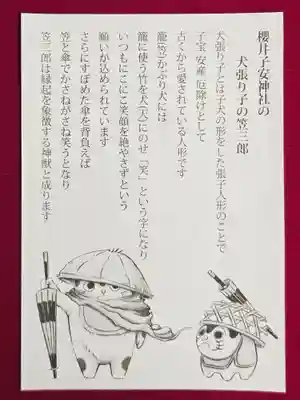 櫻井子安神社の
犬張り子の笠三郎
犬張り子とは子犬の形をした張子人形のことで
子宝 安産 厄除けとして
古くから愛されている人形です
籠(笊)かぶり犬には
籠に使う竹を犬(犬)にのせ「笑」という字になり
いつもにこにこ笑顔を絶やさずという
願いが込められています
さらにすぼめた傘を背負えば
笠と傘でかさねがさね笑うとなり
笠三郎は縁起を象徴する神獣と成ります